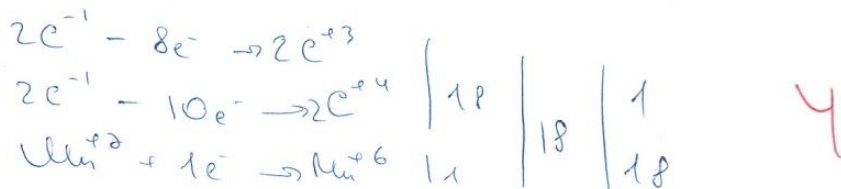 2C⁻¹ - 8e⁻ → 2C⁺³
2C⁻¹ - 10e⁻ → 2C⁺⁴ | 18 | 18 | 1
Mn⁺⁷ + 1e⁻ → Mn⁺⁶ | 1 | 18
4